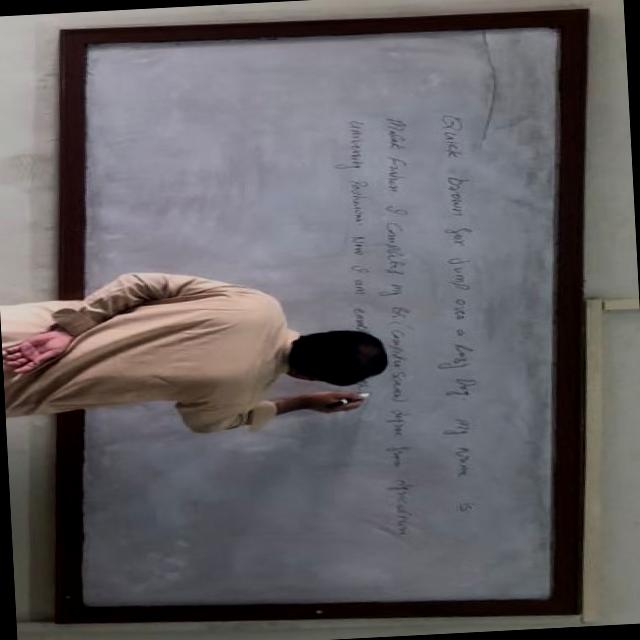 Quick brown for jump over a lazy dog my name is
Abdul I completed my BS (computer Science) degree from
University Peshawar Now I am